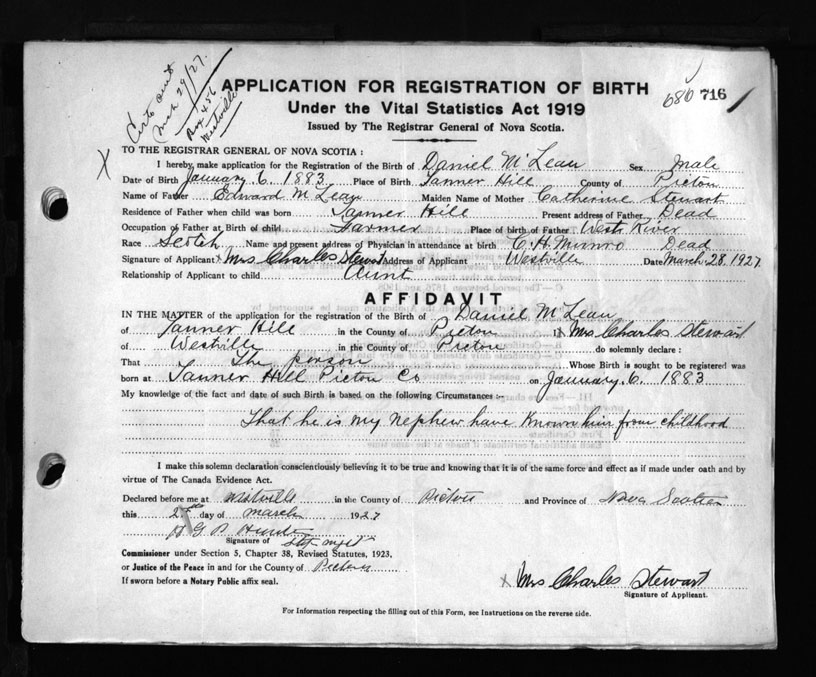 Certs out
Mch 29/27.
Box 456
Westville
APPLICATION FOR REGISTRATION OF BIRTH
680 716
Under the Vital Statistics Act 1919
Issued by The Registrar General of Nova Scotia.
X
TO THE REGISTRAR GENERAL OF NOVA SCOTIA:
I hereby make application for the Registration of the Birth of Daniel McLean Sex Male
Date of Birth January 6 1883 Place of Birth Tanner Hill County of Pictou
Name of Father Edward McLean Maiden Name of Mother Catherine Stewart
Residence of Father when child was born Tanner Hill Present address of Father Dead
Occupation of Father at Birth of child Farmer Place of birth of Father West River
Race Scotch Name and present address of Physician in attendance at birth C. H. Munro Dead
Signature of Applicant x Mrs Charles Stewart Address of Applicant Westville Date March 28 1927
Relationship of Applicant to child Aunt
AFFIDAVIT
IN THE MATTER of the application for the registration of the Birth of Daniel McLean
of Tanner Hill in the County of Pictou I, Mrs Charles Stewart
of Westville in the County of Pictou do solemnly declare:
That The person Whose Birth is sought to be registered was
born at Tanner Hill Pictou Co on January 6 1883
My knowledge of the fact and date of such Birth is based on the following Circumstances:-
That he is my nephew have known him from childhood
I make this solemn declaration conscientiously believing it to be true and knowing that it is of the same force and effect as if made under oath and by
virtue of The Canada Evidence Act.
Declared before me at Westville in the County of Pictou and Province of Nova Scotia
this day of March 1927
Signature of
Commissioner under Section 5, Chapter 38, Revised Statutes, 1923,
or Justice of the Peace in and for the County of Pictou
If sworn before a Notary Public affix seal.
x Mrs Charles Stewart
Signature of Applicant.
For Information respecting the filling out of this Form, see Instructions on the reverse side.